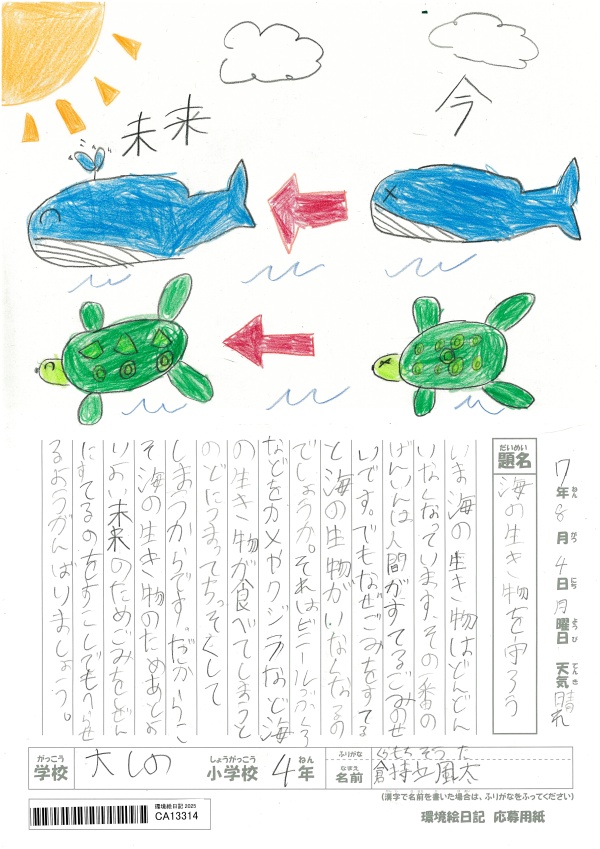 今
未来
7年8月4日月曜日 天気 晴れ
ねん がつ にち ようび てんき
だいめい
題名 海の生き物を守ろう
いま海の生き物はどんどん
いなくなっています。その一番の
げんいんは人間がすてるごみのせ
いです。でもなぜごみをすてる
と海の生物がいなくなるの
でしょうか。それはビニールぶくろ
などをカメやクジラなど海
の生き物が食べてしまうと
のどにつまってちっそくして
しまうからです。だからこ
そ海の生き物のためあとよ
りよい未来のためごみをポイ
にすてるのをすこしでもへらせ
るようがんばりましょう。
がっこう しょうがっこう ねん ふりがな
学校 大しの 小学校 4年
くらもち そうた
なまえ
名前 倉持 颯太
(漢字で名前を書いた場合は、ふりがなをふってください)
環境絵日記 2025
CA13314
環境絵日記 応募用紙